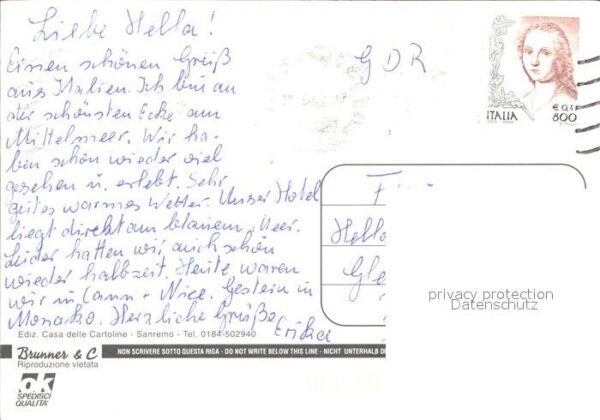 Liebe Hella!
Einen schönen Grüß
aus Italien. Ich bin an
der schönsten Ecke am
Mittelmeer. Wir ha-
ben schon wieder viel
gesehen u. erlebt. Sehr
gutes warmes Wetter. Unser Hotel
liegt direkt am blauem Meer.
Leider hatten wir auch schön
wieder halbzeit. Heute waren
wir in Cann + Nice. Gestern in
Monako. Herzliche Grüße
Erika
GDR
ITALIA
€ 0,41
800
F
Hella
Gle
privacy protection
Datenschutz
Ediz. Casa delle Cartoline - Sanremo - Tel. 0184-502940
Brunner & C
Riproduzione vietata
NON SCRIVERE SOTTO QUESTA RIGA - DO NOT WRITE BELOW THIS LINE - NICHT UNTERHALB DI
ok
SPEDISCI
QUALITÀ